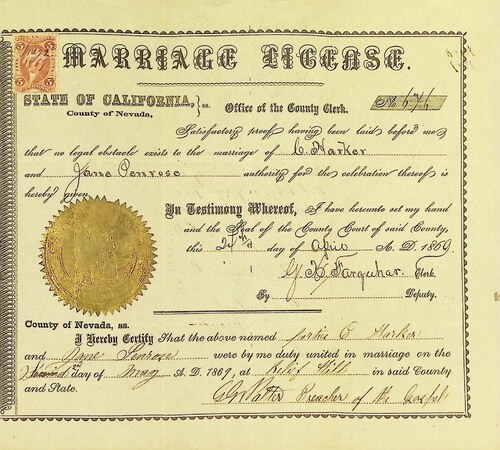 MARRIAGE LICENSE.
STATE OF CALIFORNIA, ss.
County of Nevada,
Office of the County Clerk.
No 676
Satisfactory proof having been laid before me
that no legal obstacle exists to the marriage of C. Harker
and Jane Penrose authority for the celebration thereof is
hereby given.
In Testimony Whereof, I have hereunto set my hand
and the Seal of the County Court of said County,
this 24th day of April A. D. 1869.
G. K. Farquhar. Clerk.
By Deputy.
County of Nevada, ss.
I Hereby Certify That the above named E Harker
and Jane Penrose were by me duly united in marriage on the
day of May A. D. 1869, at Relief Hill in said County
and State.
Preacher of the Gospel